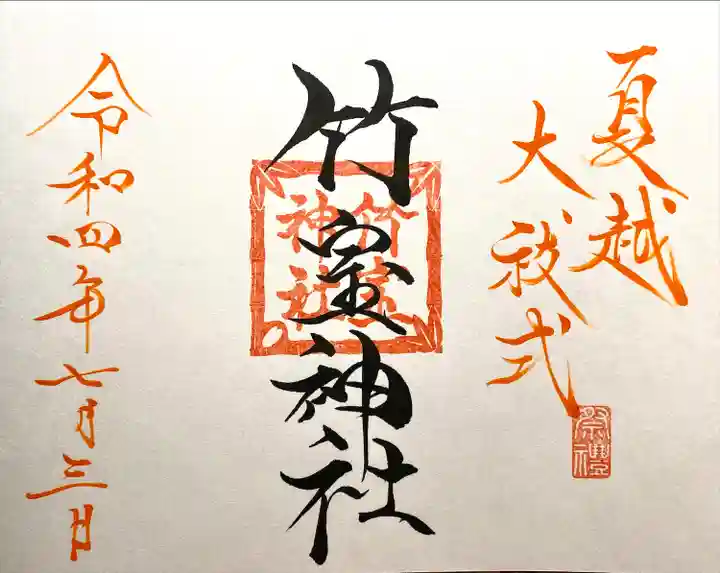 夏越
大祓式
祭禮
竹神社
竹神社
令和四年七月三日